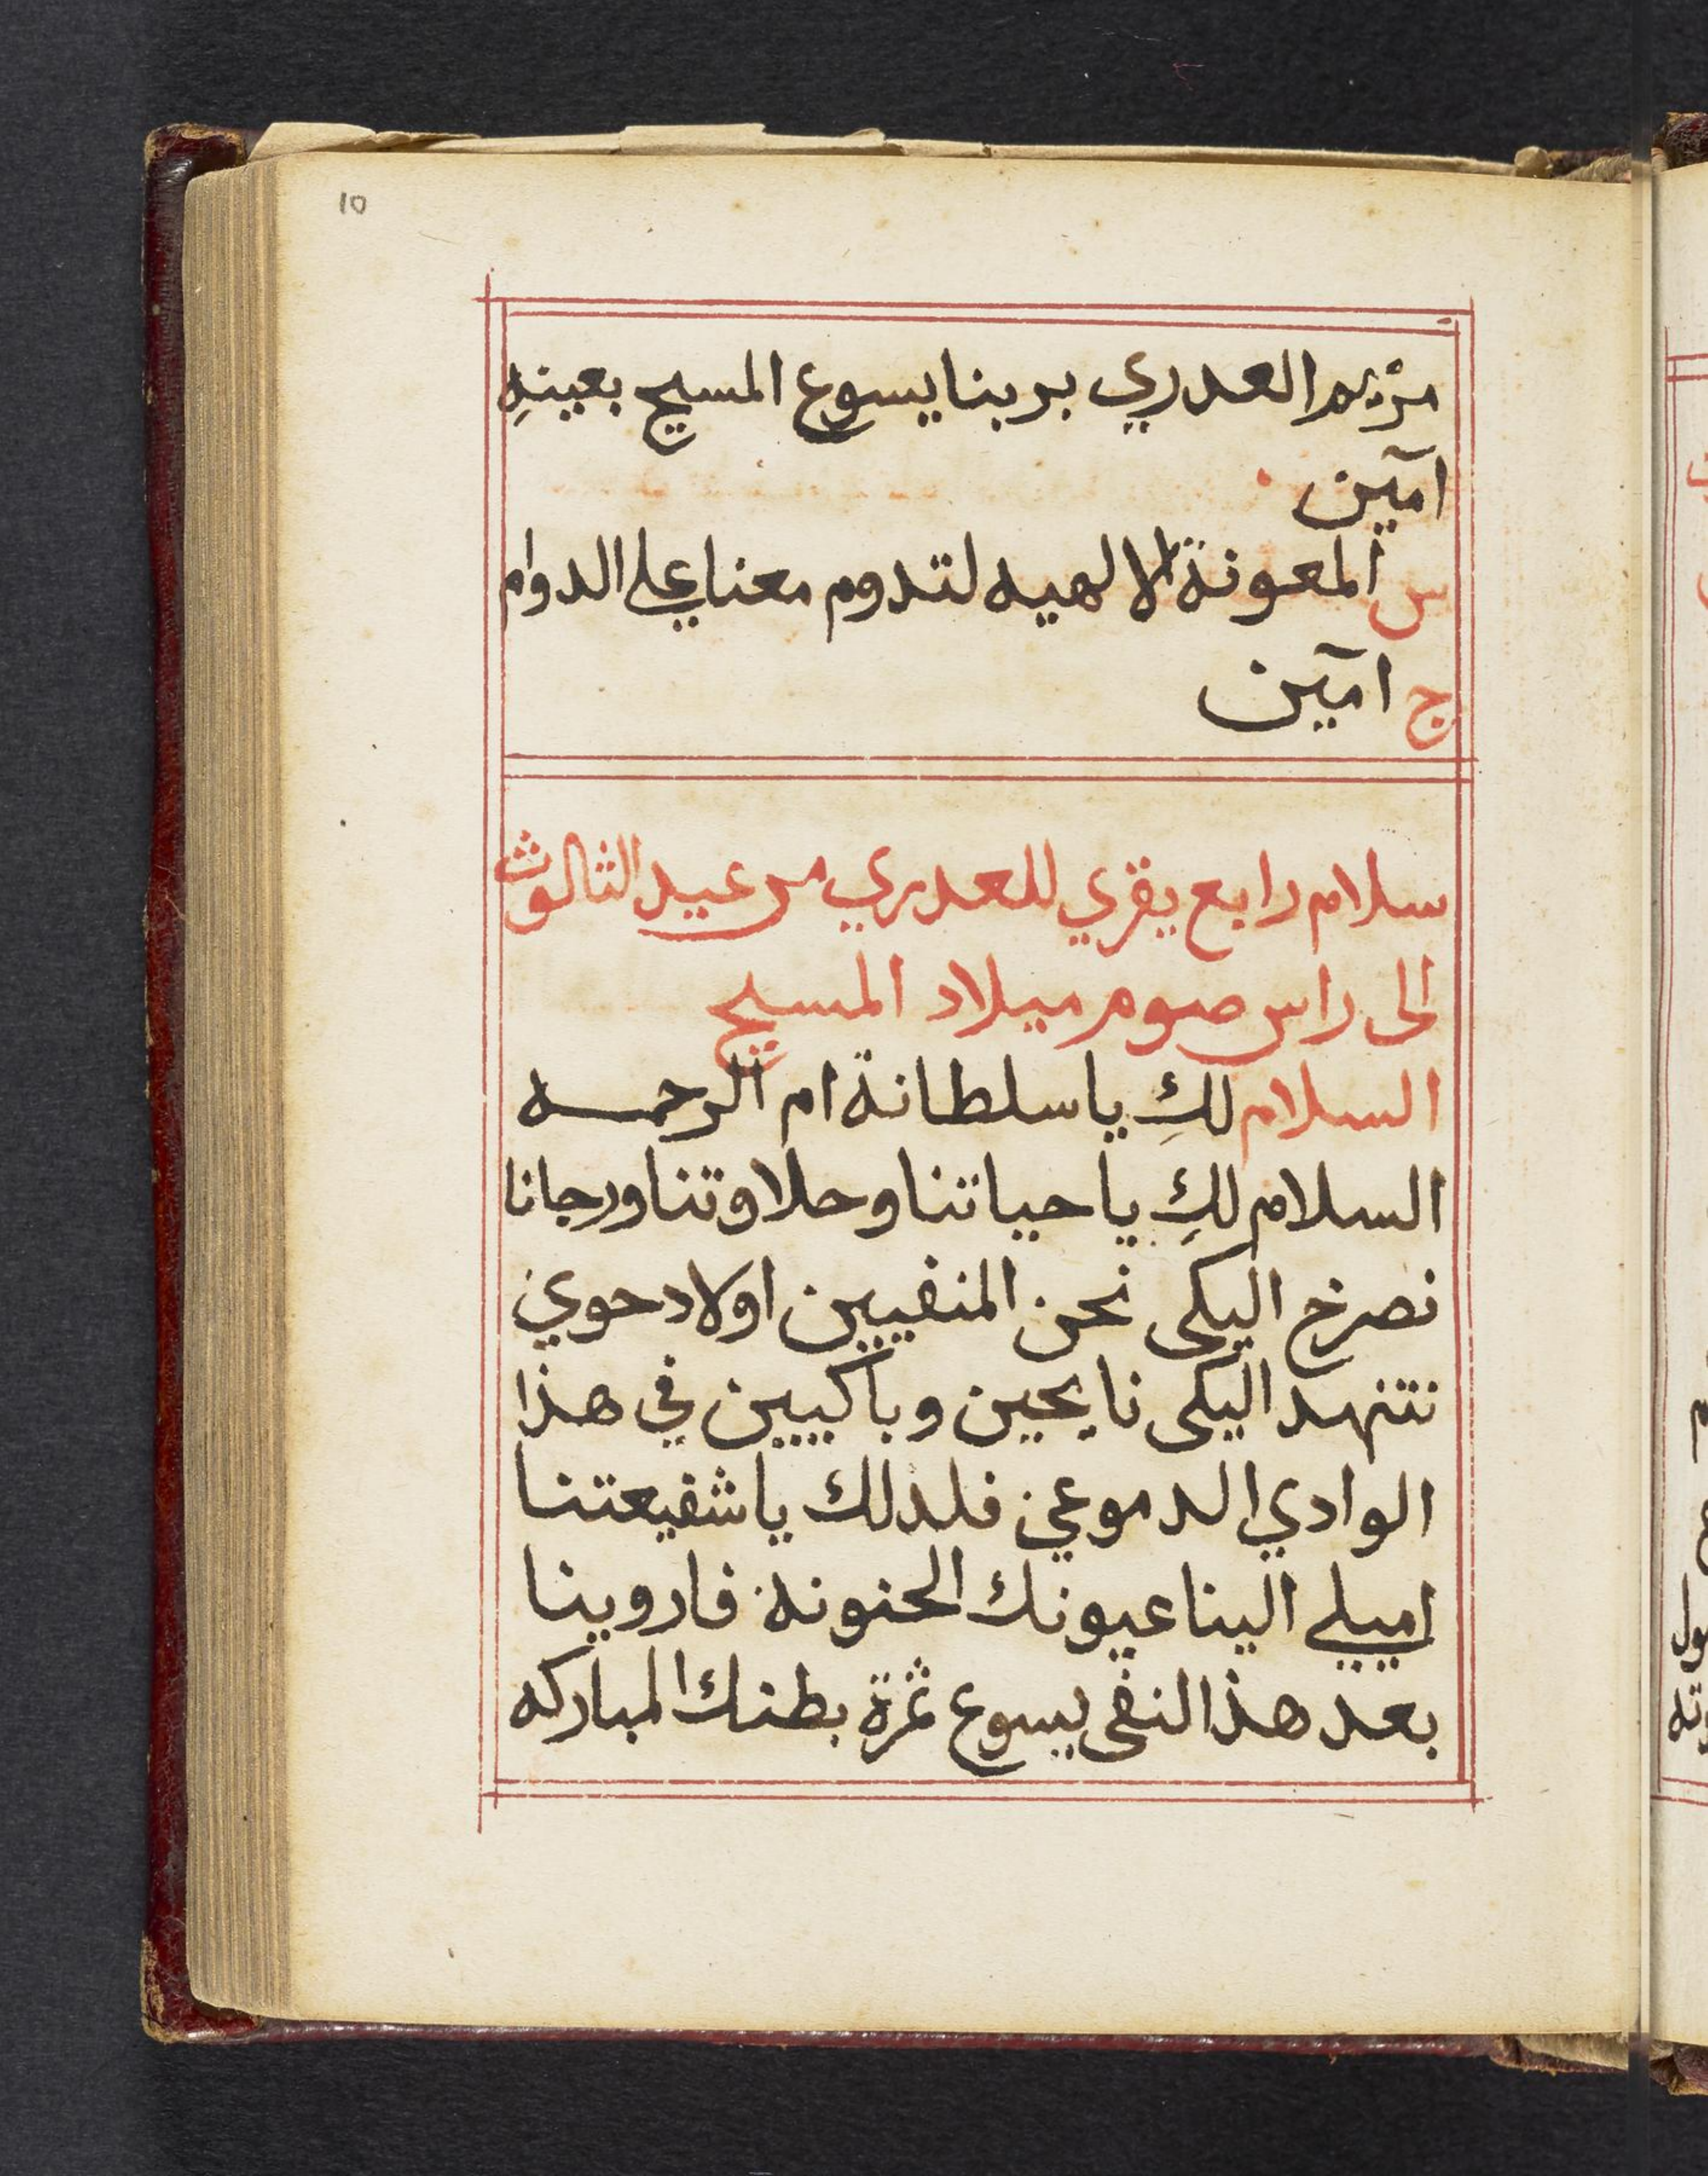 10
مريم العدري بربنا يسوع المسيح بعينهِ
امآين
س المعونة الالهيه لتدوم معنا علي الدوام
ج امآين
سلام رابع يقري للعدري من عيد الثالوث
الى راس صوم ميلاد المسيح
السلام لكِ يا سلطانة ام الرحمه
السلام لكِ يا حياتنا وحلاوتنا ورجانا
نصرخ اليكى نحن المنفيين اولاد حوي
نتنهد اليكى نايحين وباكيين في هذا
الوادي الدموعي فلدلك يا شفيعتنا
اميلي الينا عيونك الحنونة فاروينا
بعد هذا النفى يسوع ثمرة بطنك المباركه